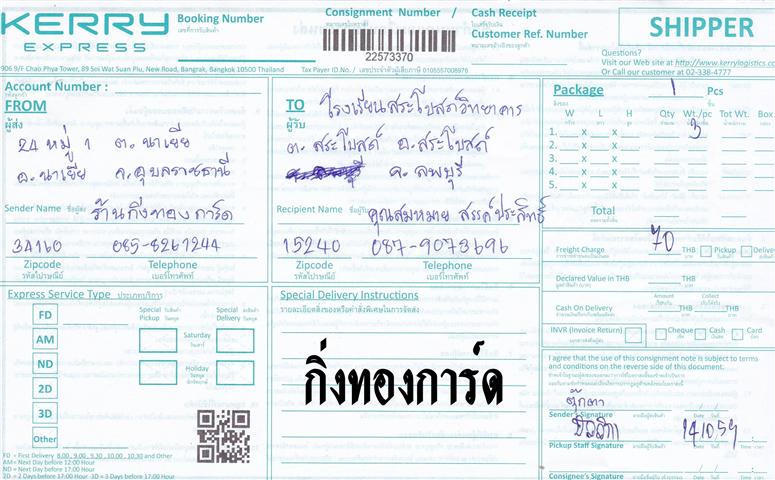 KERRY
EXPRESS
Booking Number
เลขที่การรับสินค้า
Consignment Number /
หมายเลขใบตราส่ง
22573370
Cash Receipt
ใบเสร็จรับเงิน
Customer Ref. Number
หมายเลขอ้างอิงของลูกค้า
SHIPPER
Questions?
Visit our Web site at http://www.kerrylogistics.c
Or Call our customer at 02-338-4777
906 9/F Chao Phya Tower, 89 Soi Wat Suan Plu, New Road, Bangrak, Bangkok 10500 Thailand
Tax Payer ID.No. / เลขประจำตัวผู้เสียภาษี 0105557008976
Account Number :
รหัสลูกค้า
FROM
ผู้ส่ง
24 หมู่ 1 ต. นาเยีย
อ. นาเยีย จ. อุบลราชธานี
Sender Name ชื่อผู้ส่ง ร้านกิ่งทองการ์ด
34160 085-8261244
Zipcode Telephone
รหัสไปรษณีย์ เบอร์โทรศัพท์
TO โรงเรียนสระโบสถ์วิทยาคาร
ผู้รับ
ต. สระโบสถ์ อ. สระโบสถ์
จ. ลพบุรี
Recipient Name ชื่อผู้รับ คุณสมหมาย สรรค์ประสิทธิ์
15240 087-9073696
Zipcode Telephone
รหัสไปรษณีย์ เบอร์โทรศัพท์
Package 1 Pcs
W L H Wt./pc Tot Wt. Box
1. x x 3
2. x x
3. x x
4. x x
5. x x
Total
Freight Charge 70 THB Pickup Deliver
Declared Value in THB
Amount Collect
Cash On Delivery THB THB
INVR (Invoice Return) Cheque Cash Card
Express Service Type ประเภทบริการ
FD
AM
ND
2D
3D
Other
Special Pickup
Special Delivery
Saturday
วันเสาร์
Holiday
วันหยุด
FD = First Delivery 8.00 , 9.00 , 9.30 , 10.00 , 10.30 and Other
AM= Next Day before 12:00 Hour
ND = Next Day before 17:00 Hour
2D = 2 Days before 17:00 Hour 3D = 3 Days before 17:00 Hour
Special Delivery Instructions
รายละเอียดสิ่งของหรือคำสั่งพิเศษในการจัดส่ง
กิ่งทองการ์ด
I agree that the use of this consignment note is subject to terms
and conditions on the reverse side of this document.
ตุ๊กตา
Sender's Signature
14/10/59
Pickup Staff Signature
Consignee's Signature